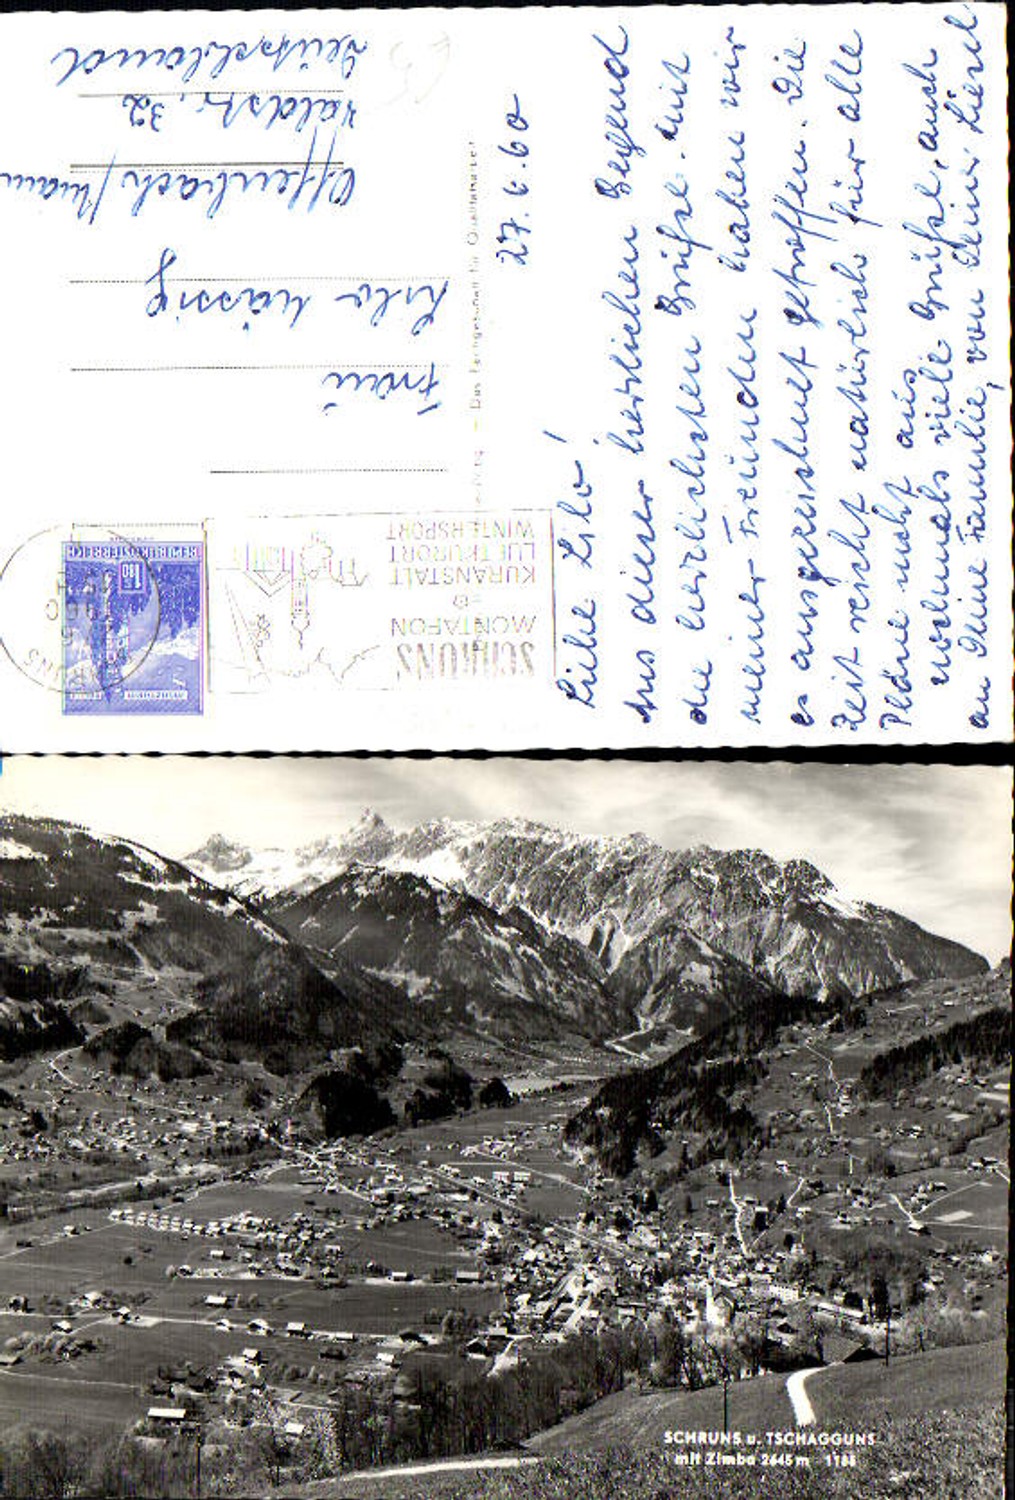 27.6.60
Liebe Lilo!
Aus dieser herrlichen Gegend
die herzlichsten Grüße. mit
meiner Freundin haben wir
es ausgezeichnet getroffen. Die
Zeit reicht natürlich für alle
Pläne nicht aus
nochmals viele Grüße, auch
an Deine Familie, von Deiner Liesel
Frau
Lilo
Offenbach / Main
Waldstr. 32
Deutschland
SCHRUNS
MONTAFON
KURANSTALT
LUFTKURORT
WINTERSPORT
REPUBLIK ÖSTERREICH
1.80
SCHRUNS u. TSCHAGGUNS
mit Zimba 2645 m